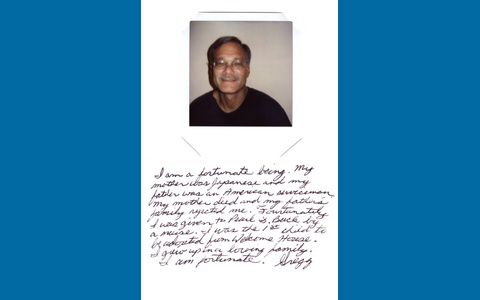 I am a fortunate being. My
mother was Japanese and my
father was an American serviceman.
My mother died and my fathers
family rejected me. Fourtunately
I was given to Pearl S. Buck by
a nurse. I was the 1st child to
be adopted from Welcome House.
I grew up in a loving family.
I am fortunate. Gregg